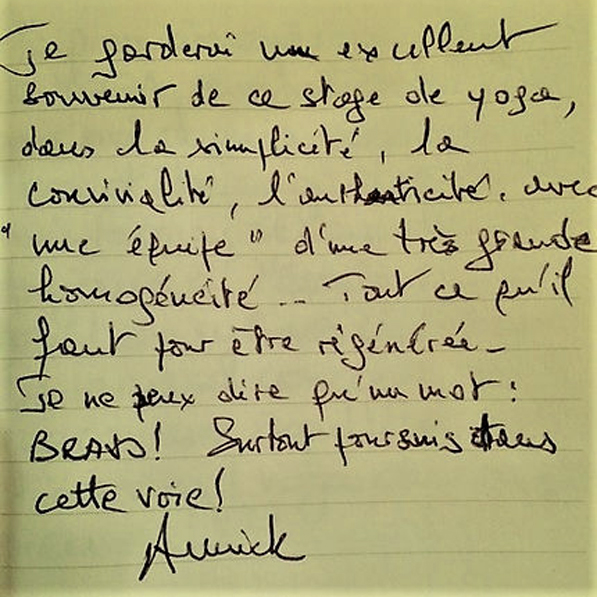 Je garderai un excellent
souvenir de ce stage de yoga,
dans la simplicité, la
convivialité, l'authenticité. avec
"une équipe" d'une très grande
homogénéité... Tout ce qu'il
faut pour être régénérée_
Je ne peux dire qu'un mot :
BRAVO! Surtout poursuis dans
cette voie!
Annick